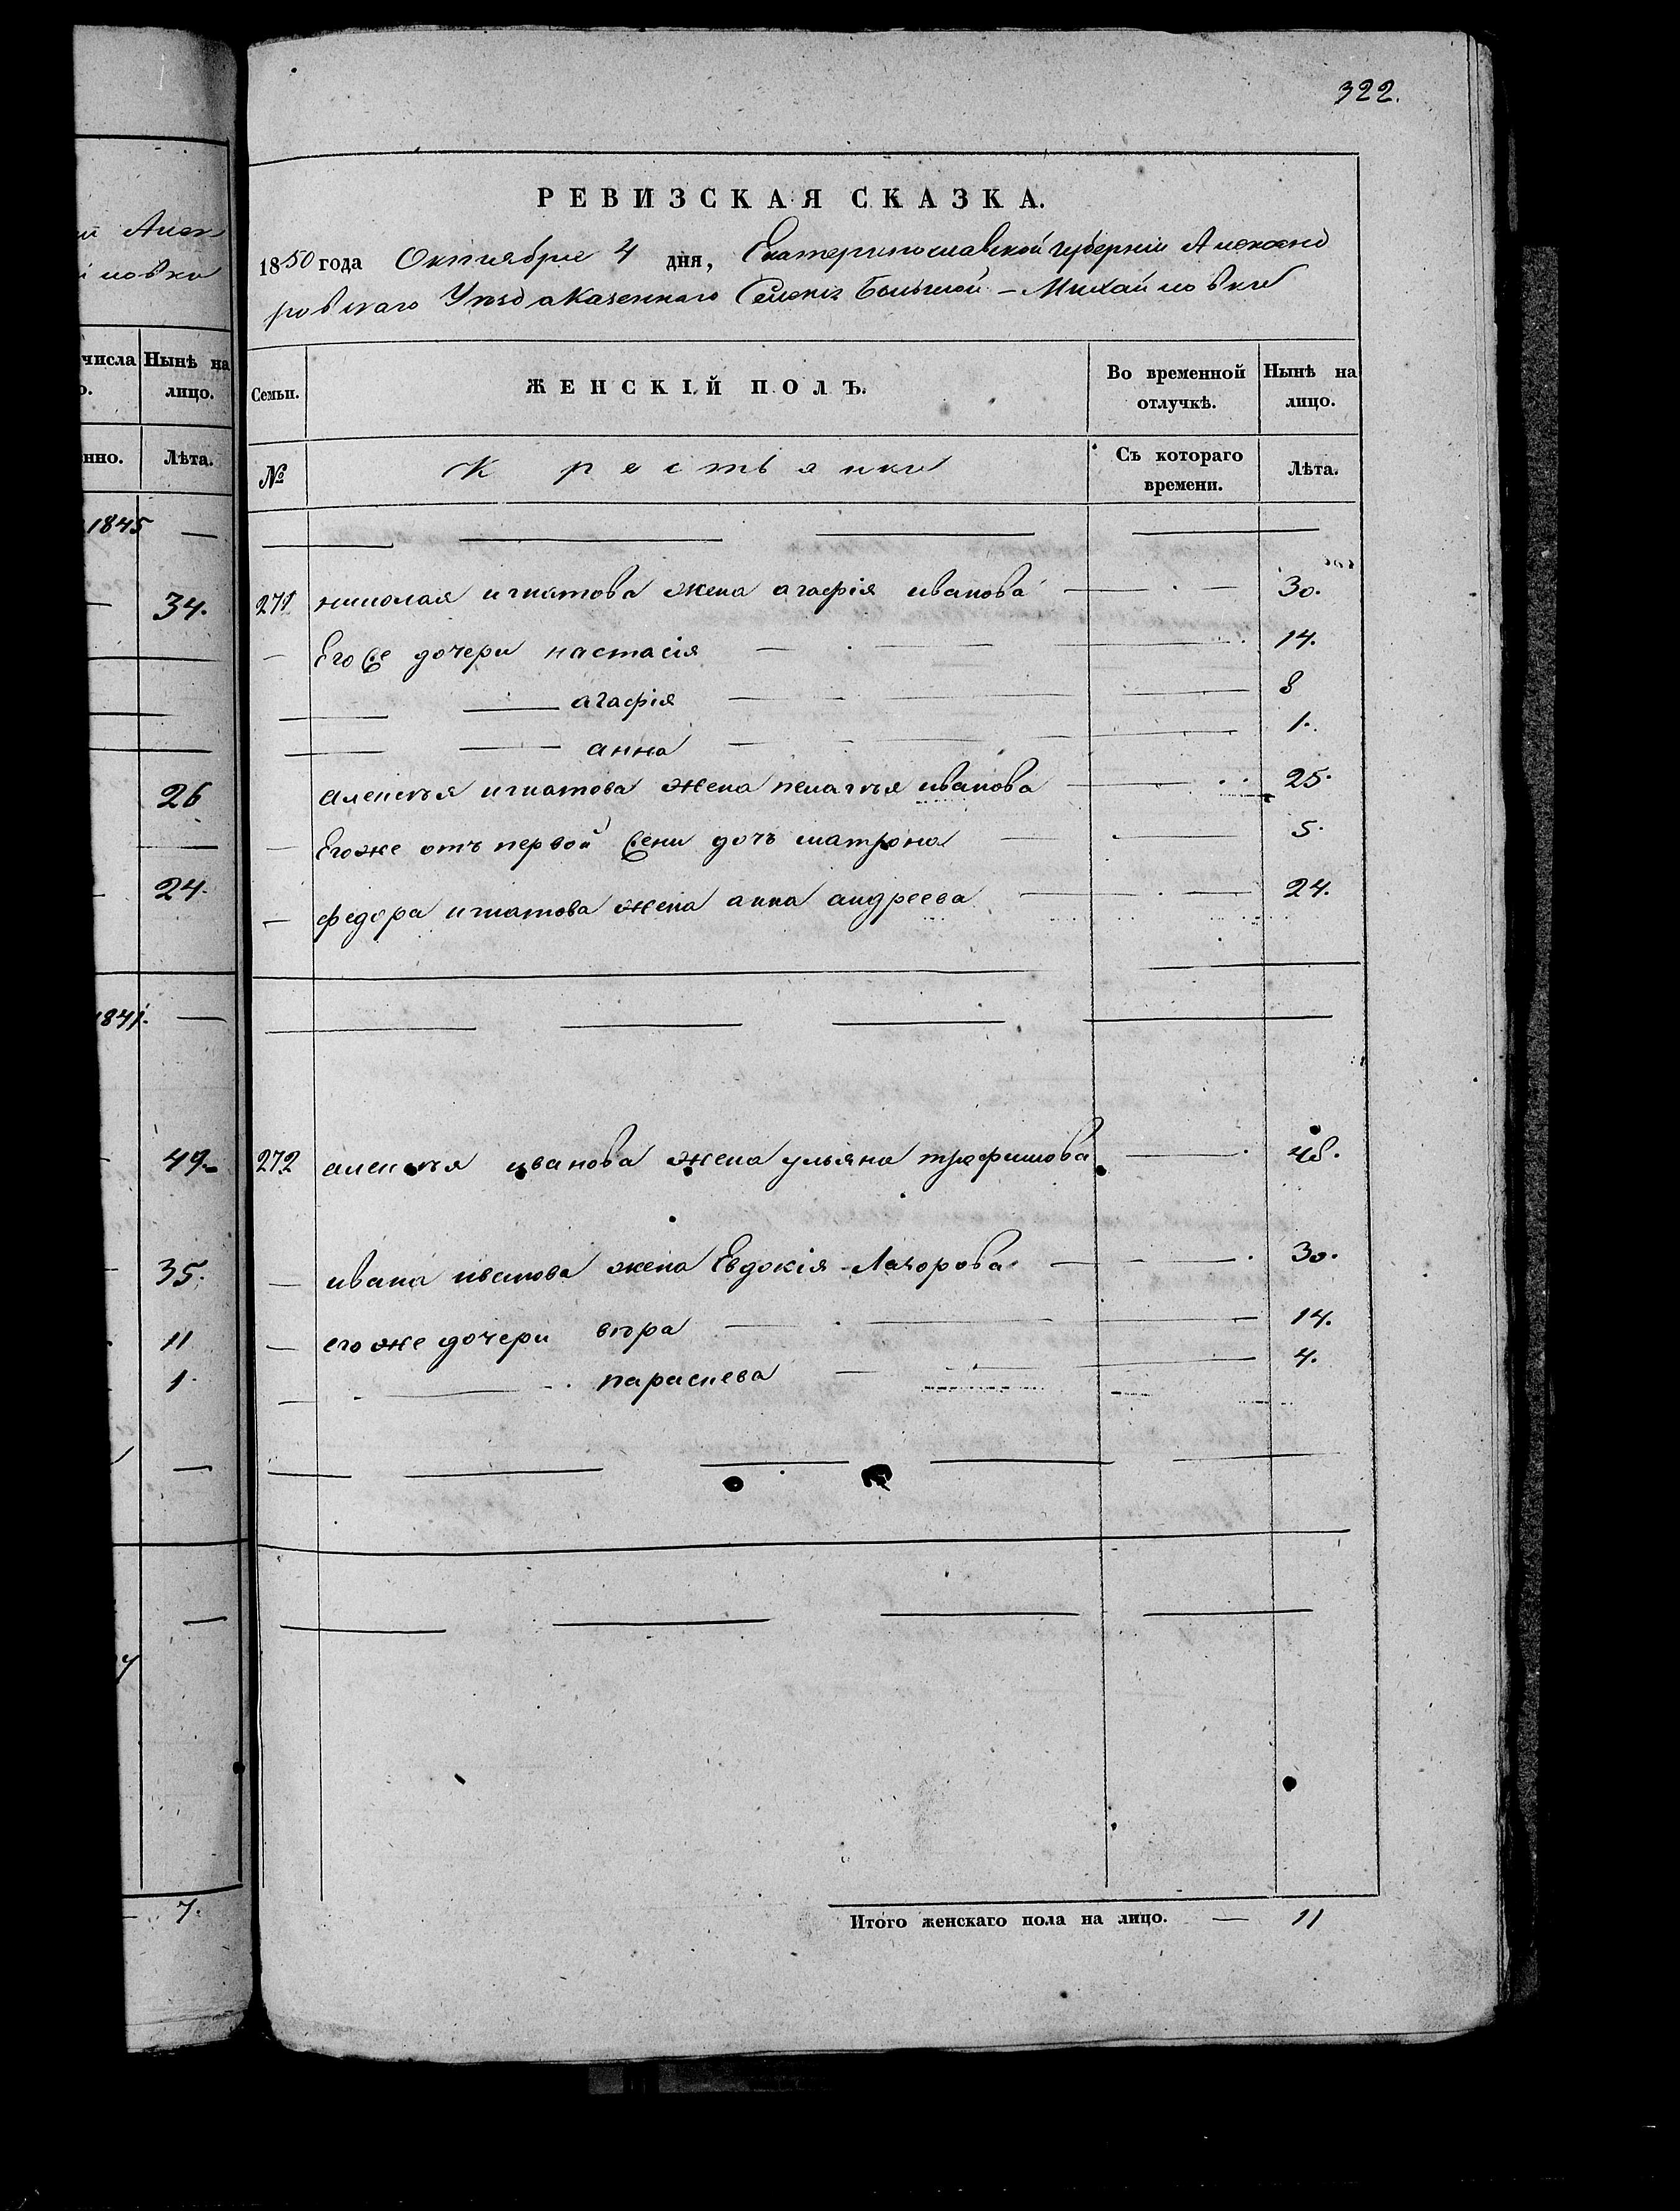 322.
РЕВИЗСКАЯ СКАЗКА.
1850 года Октября 4 дня, Екатеринославской губерніи Александ
ровскаго Уѣзда Казеннаго Селенія Большой - Михайловки
Семьи. ЖЕНСКІЙ ПОЛЪ. Во временной отлучкѣ. Нынѣ на лицо.
№ Крестьянки Съ котораго времени. Лѣта.
271 николая игнатова жена агафія иванова 30.
Его Се дочери настасія 14.
агафія 8
анна 1.
алексѣя игнатова жена пелагѣя иванова 25.
Егоже отъ первой жени дочь матрона 5.
федора игнатова жена анна андреева 24.
272 алексѣя иванова жена ульяна трофимова 48.
ивана иванова жена Евдокія 30.
егоже дочери вѣра 14.
параскева 4.
Итого женскаго пола на лицо. — 11
числа Нынѣ на
лицо.
нно. Лѣта.
1845 —
34.
26
24.
1841. —
49.
35.
11
1.
7.